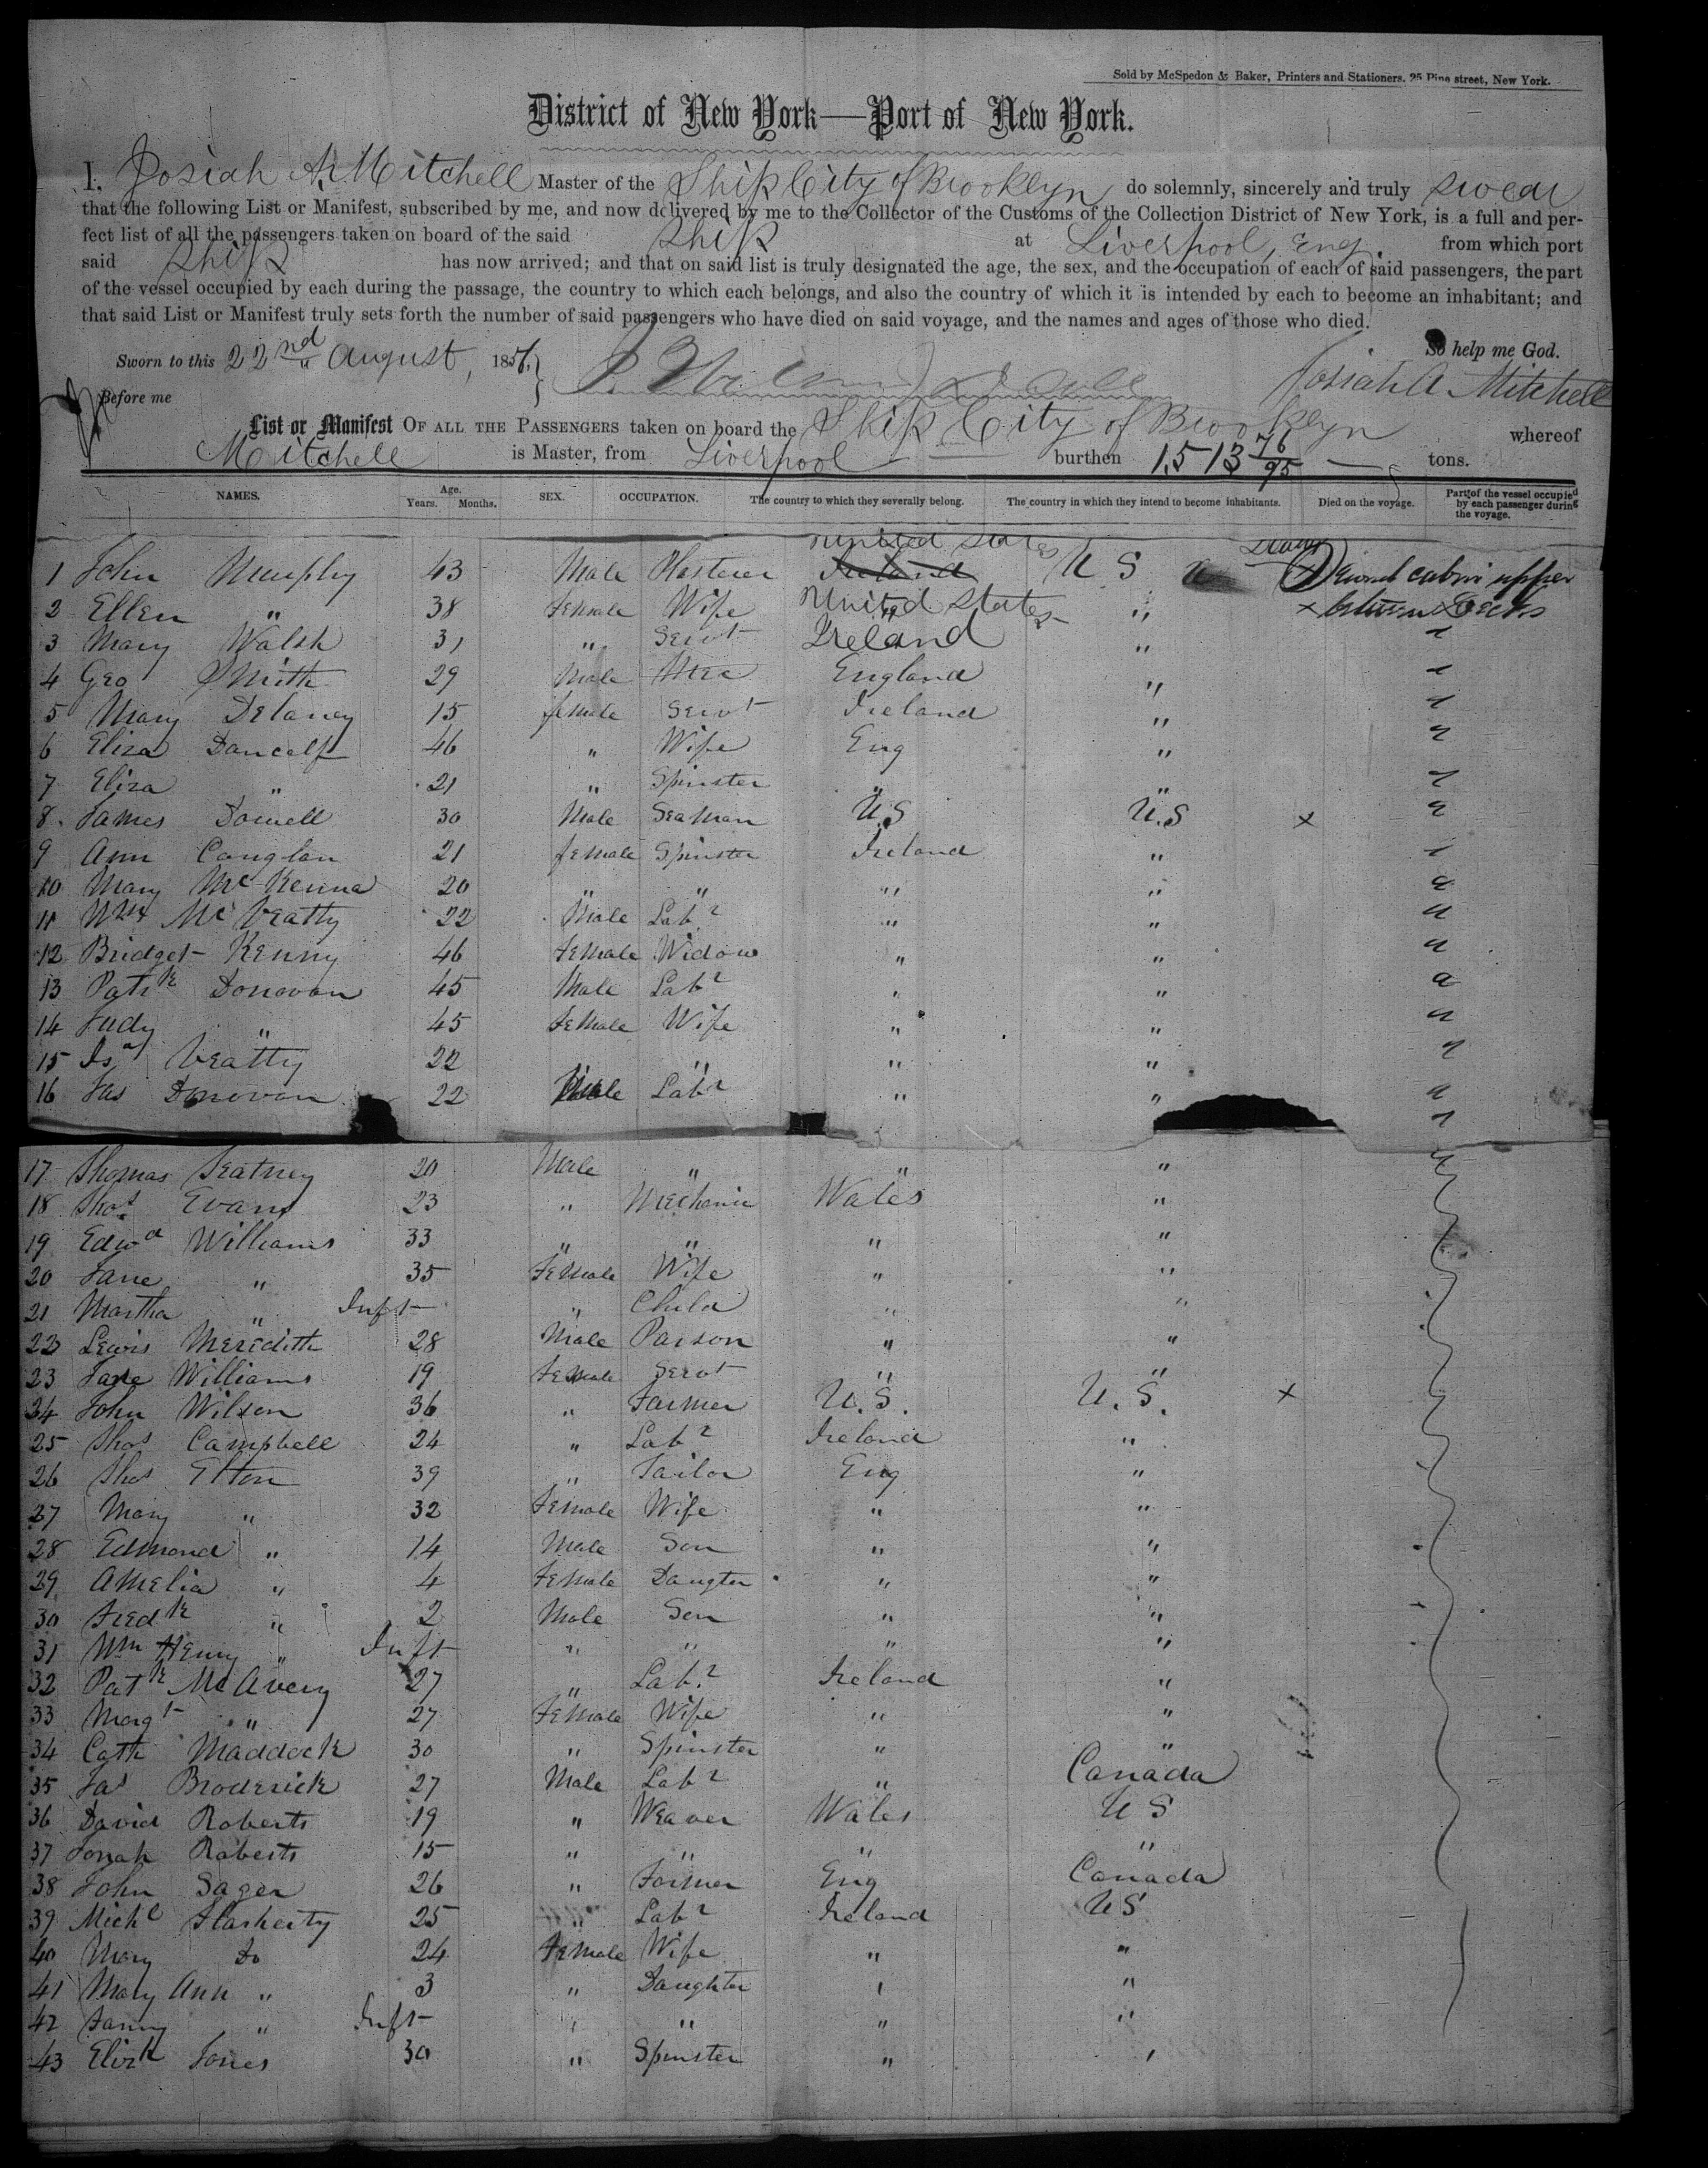 Sold by McSpedon & Baker, Printers and Stationers, 25 Pine street, New York.
District of New York—Port of New York.
I, Josiah A. Mitchell Master of the Ship City of Brooklyn do solemnly, sincerely and truly swear
that the following List or Manifest, subscribed by me, and now delivered by me to the Collector of the Customs of the Collection District of New York, is a full and per-
fect list of all the passengers taken on board of the said ship at Liverpool, Eng. from which port
said ship has now arrived; and that on said list is truly designated the age, the sex, and the occupation of each of said passengers, the part
of the vessel occupied by each during the passage, the country to which each belongs, and also the country of which it is intended by each to become an inhabitant; and
that said List or Manifest truly sets forth the number of said passengers who have died on said voyage, and the names and ages of those who died.
So help me God.
Sworn to this 22nd August, 1856.
Josiah A Mitchell
Before me
List or Manifest OF ALL THE PASSENGERS taken on board the Ship City of Brooklyn whereof
Mitchell is Master, from Liverpool burthen 1513 76/95 tons.
NAMES. Age. Years. Months. SEX. OCCUPATION. The country to which they severally belong. The country in which they intend to become inhabitants. Died on the voyage. Part of the vessel occupied by each passenger during the voyage.
1 John Murphy 43 Male Plasterer United States Ireland U S Second cabin upper
2 Ellen " 38 Female Wife United States " between Decks
3 Mary Walsh 31 " Servt Ireland "
4 Geo Smith 29 Male England "
5 Mary Delaney 15 female Servt Ireland "
6 Eliza Dancalf 46 " Wife Eng "
7 Eliza " 21 " Spinster " "
8 James Dowell 30 Male Seaman U.S U.S x
9 Ann Conglan 21 female Spinster Ireland "
10 Mary McKenna 20 " " " "
11 Wm McVeatty 22 Male Labr " "
12 Bridget Kenny 46 Female Widow " "
13 Patk Donovan 45 Male Labr " "
14 Judy " 45 Female Wife " "
15 Isa Veatty 22 " " "
16 Jas Donovan 22 Male Labr " "
17 Thomas Featney 20 Male " " "
18 Thos Evans 23 " Mechanic Wales "
19 Edwd Williams 33 " " " "
20 Jane " 35 Female Wife " "
21 Martha " Inft " Child " "
22 Lewis Meredith 28 Male Parson " "
23 Jane Williams 19 Female Servt " "
24 John Wilson 36 " Farmer U.S. U.S. x
25 Thos Campbell 24 " Labr Ireland "
26 Thos Elton 39 " Tailor Eng "
27 Mary " 32 Female Wife " "
28 Edmond " 14 Male Son " "
29 Amelia " 4 Female Daugter " "
30 Fredk " 2 Male Son " "
31 Wm Henry " Inft " " " "
32 Patk McAvery 27 " Labr Ireland "
33 Margt " 27 Female Wife " "
34 Cath Maddock 30 " Spinster " "
35 Jas Broderick 27 Male Labr " Canada
36 David Roberts 19 " Weaver Wales U S
37 Jonah Roberts 15 " " " "
38 John Sager 26 " Farmer Eng Canada
39 Michl Flasherty 25 " Labr Ireland U S
40 Mary Do 24 Female Wife " "
41 Mary Ann " 3 " Daughter " "
42 Fanny " Inft " " " "
43 Elizh Jones 30 " Spinster " "